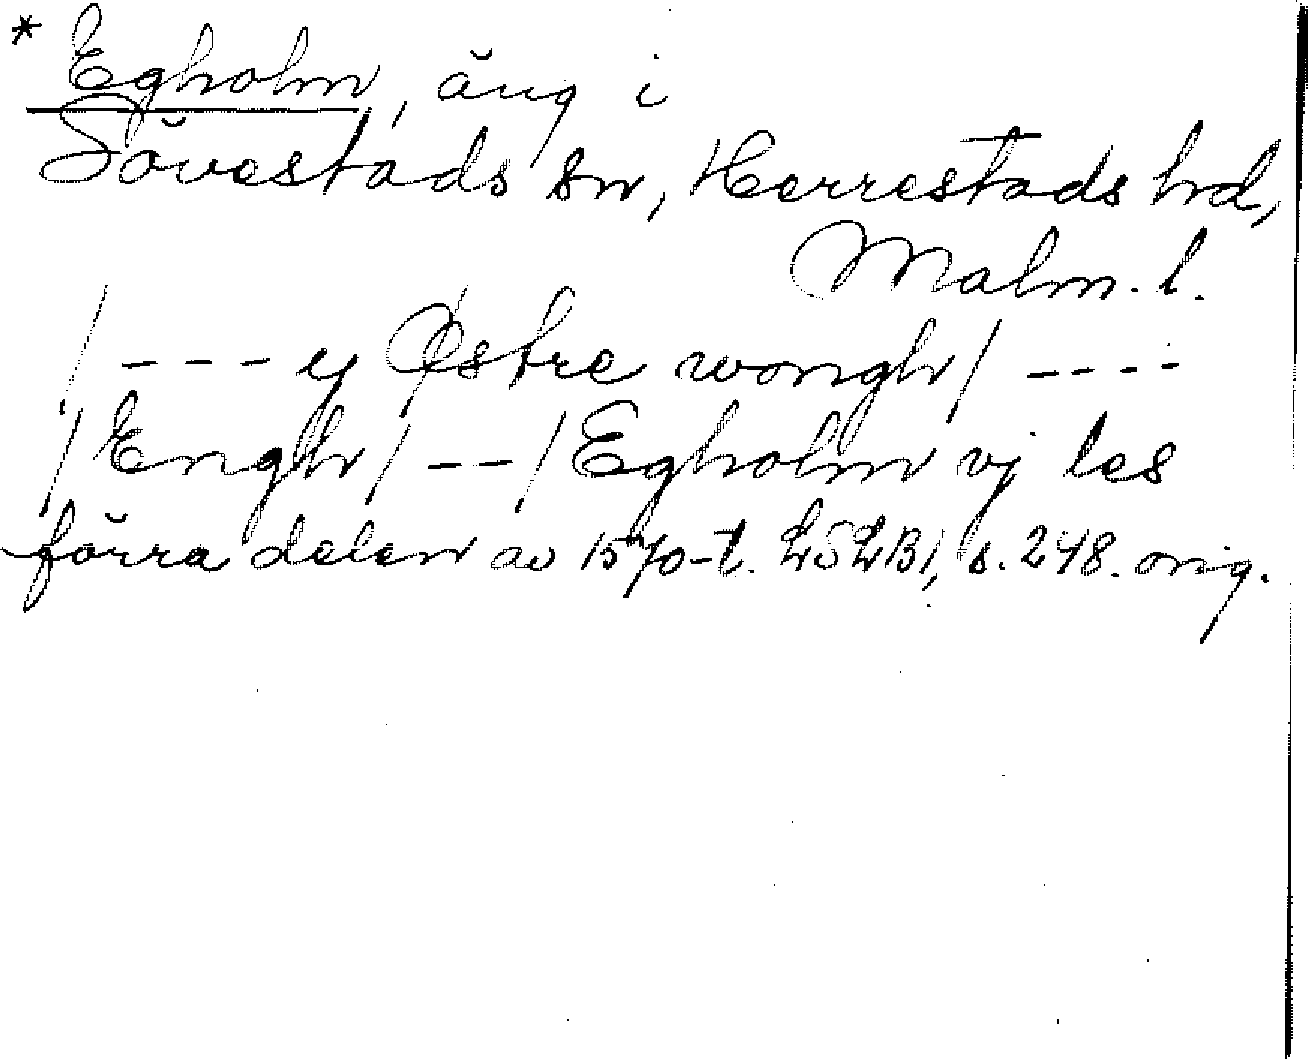 * Egholm, äng i
Sövestads sn, Herrestads hd,
Malm. l.
/ - - - y Østre wongh / - - - -
/ Engh / - - / Egholm vj les
förra delen av 1570-t. LSLB1, s. 248. orig.